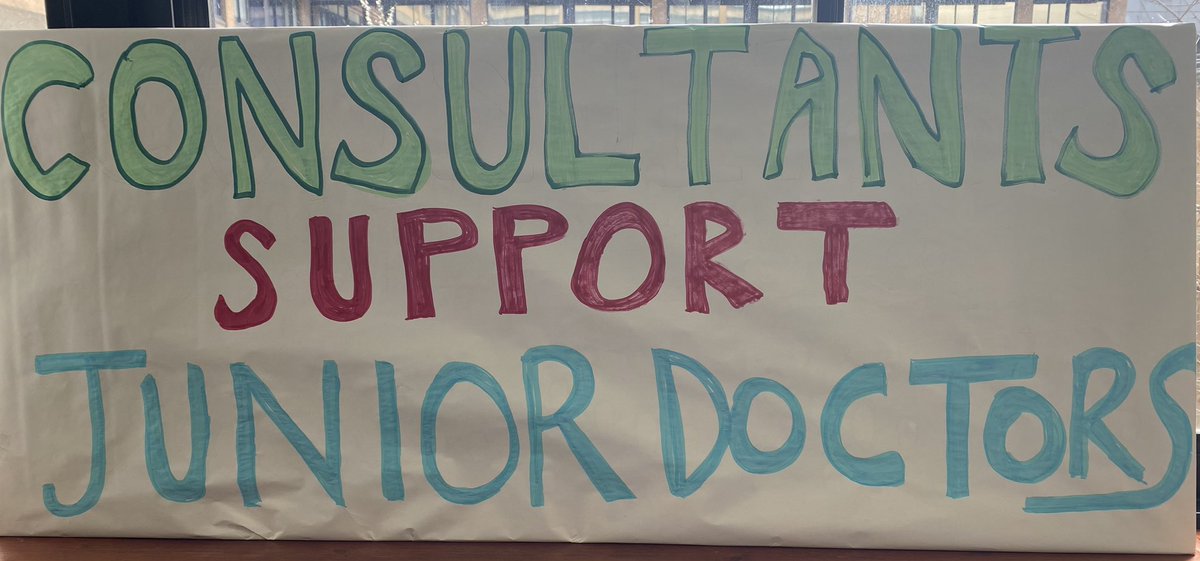 CONSULTANTS
SUPPORT
JUNIOR DOCTORS